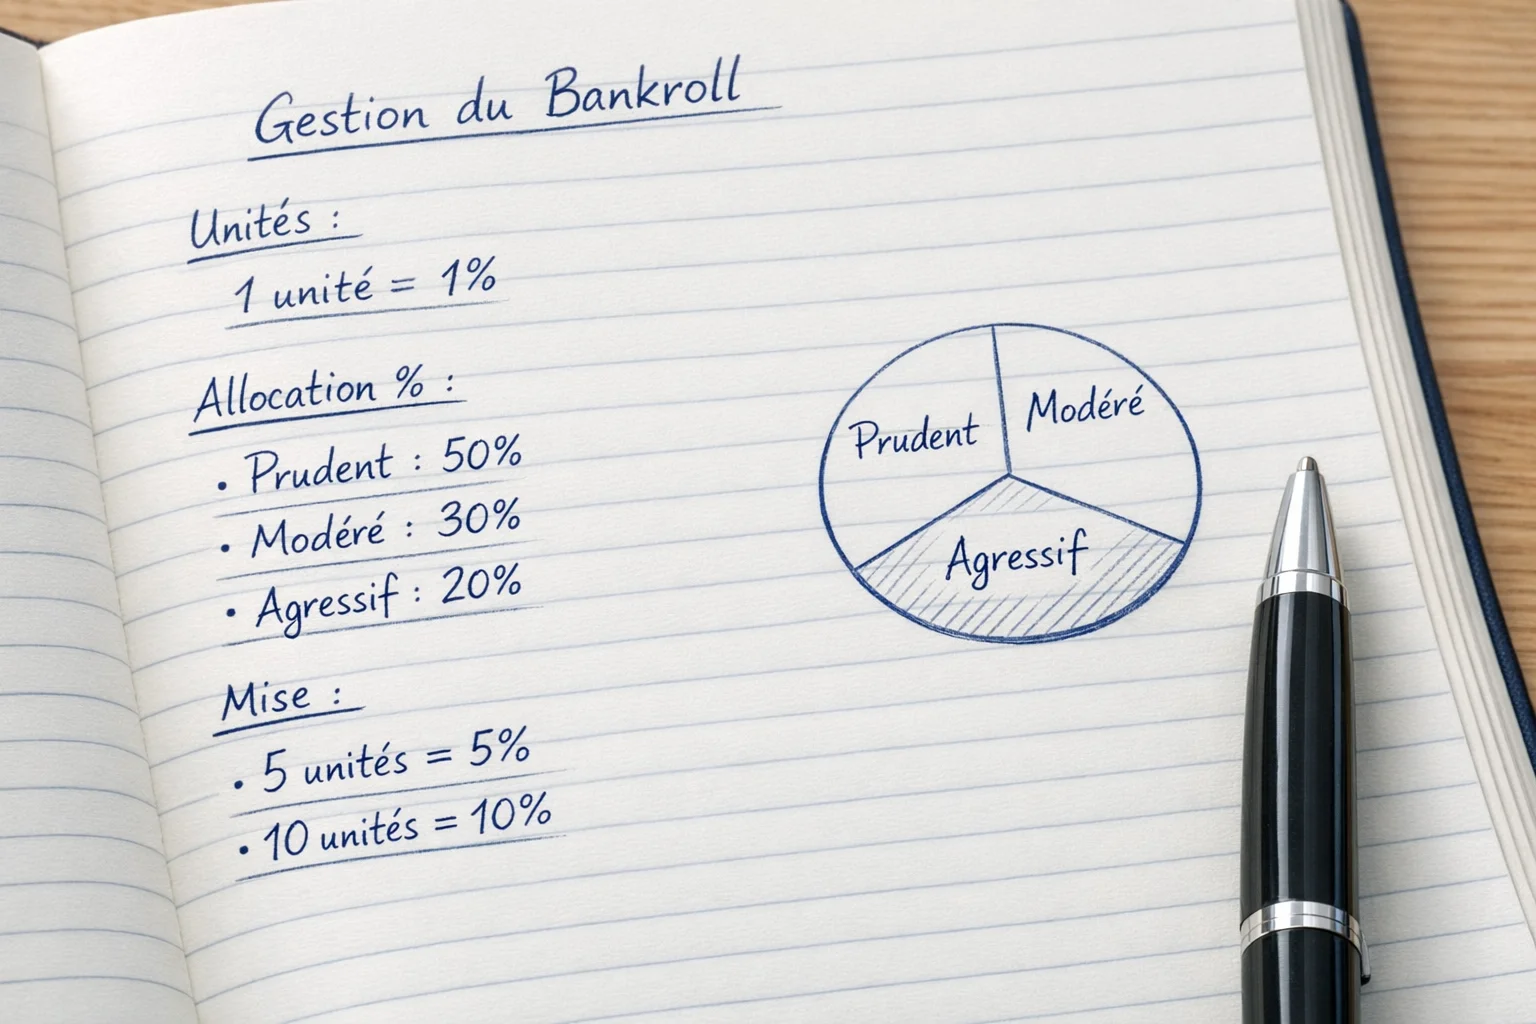 Gestion du Bankroll
Unités :
1 unité = 1%
Allocation % :
• Prudent : 50%
• Modéré : 30%
• Agressif : 20%
Mise :
• 5 unités = 5%
• 10 unités = 10%
Prudent
Modéré
Agressif